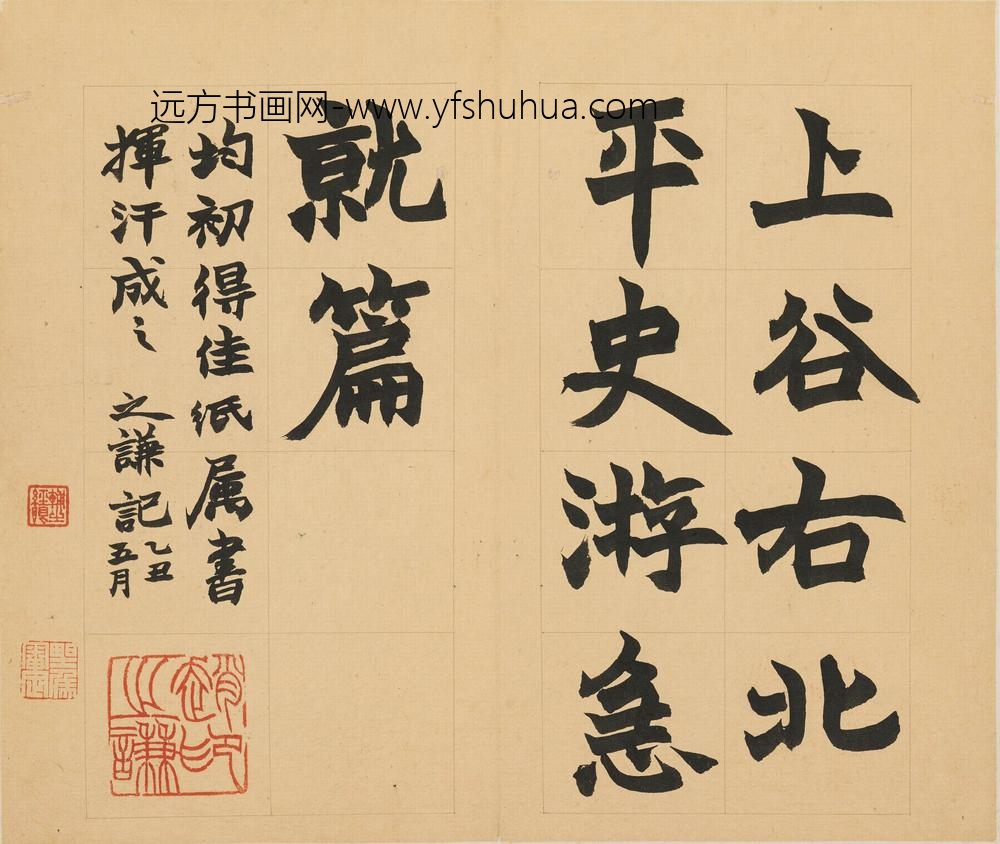 远方书画网-www.yfshuhua.com
上谷右北
平史游急
就篇
均初得佳纸属書
揮汗成之
之謙記
乙丑
五月
趙之謙印